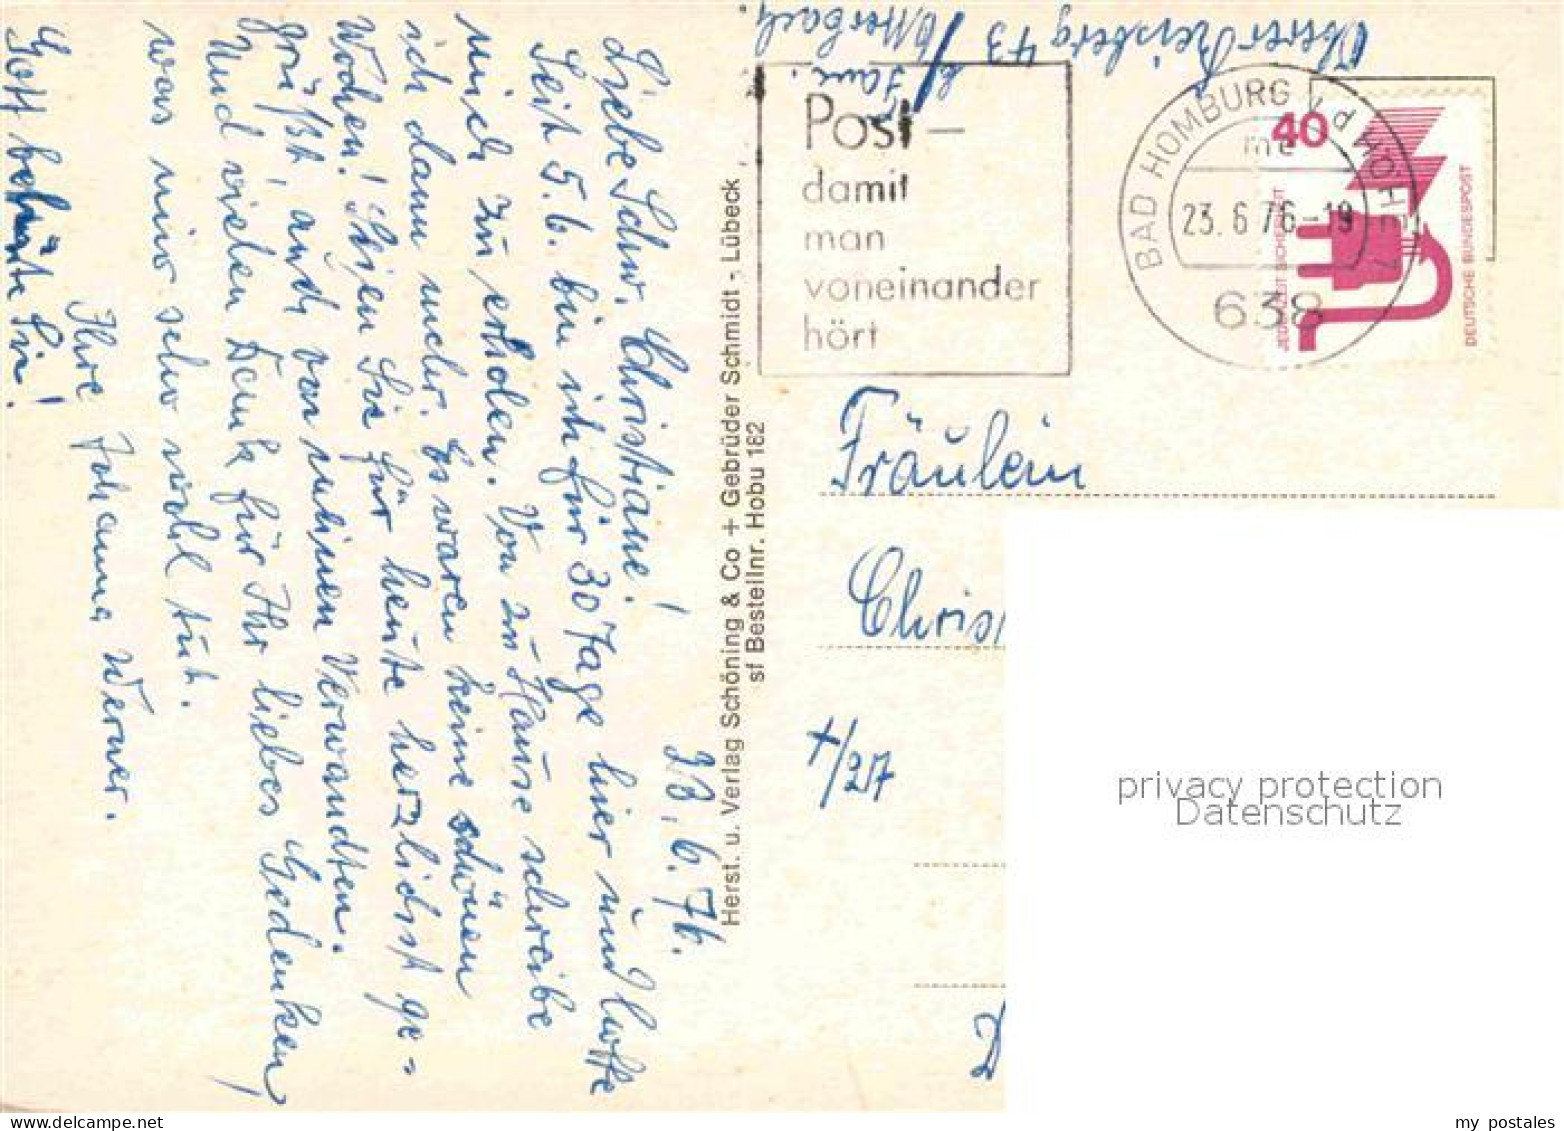 23.6.76.
Liebe Schw. Christiane!
Seit 5.6. bin ich für 30 Tage hier und hoffe
mich zu erholen. Von zu Hause schreibe
ich dann mehr. Es waren keine schönen
Wochen! Seien Sie für heute herzlichst ge-
grüßt, auch von meinen Verwandten.
Und vielen Dank für Ihr liebes Gedenken,
was mir sehr wohl tut.
Ihre Johanna Werner.
Gott behüte Sie!
Herst. u. Verlag Schöning & Co + Gebrüder Schmidt -, Lübeck
sf Bestellnr. Hobu 182
Oberer 43
Post –
damit
man
voneinander
hört
BAD HOMBURG v d HÖHE 1
me
23. 6 76 - 19
638
40
JEDERZEIT SICHERHEIT
DEUTSCHE BUNDESPOST
Fräulein
Chris
privacy protection
Datenschutz
my postales